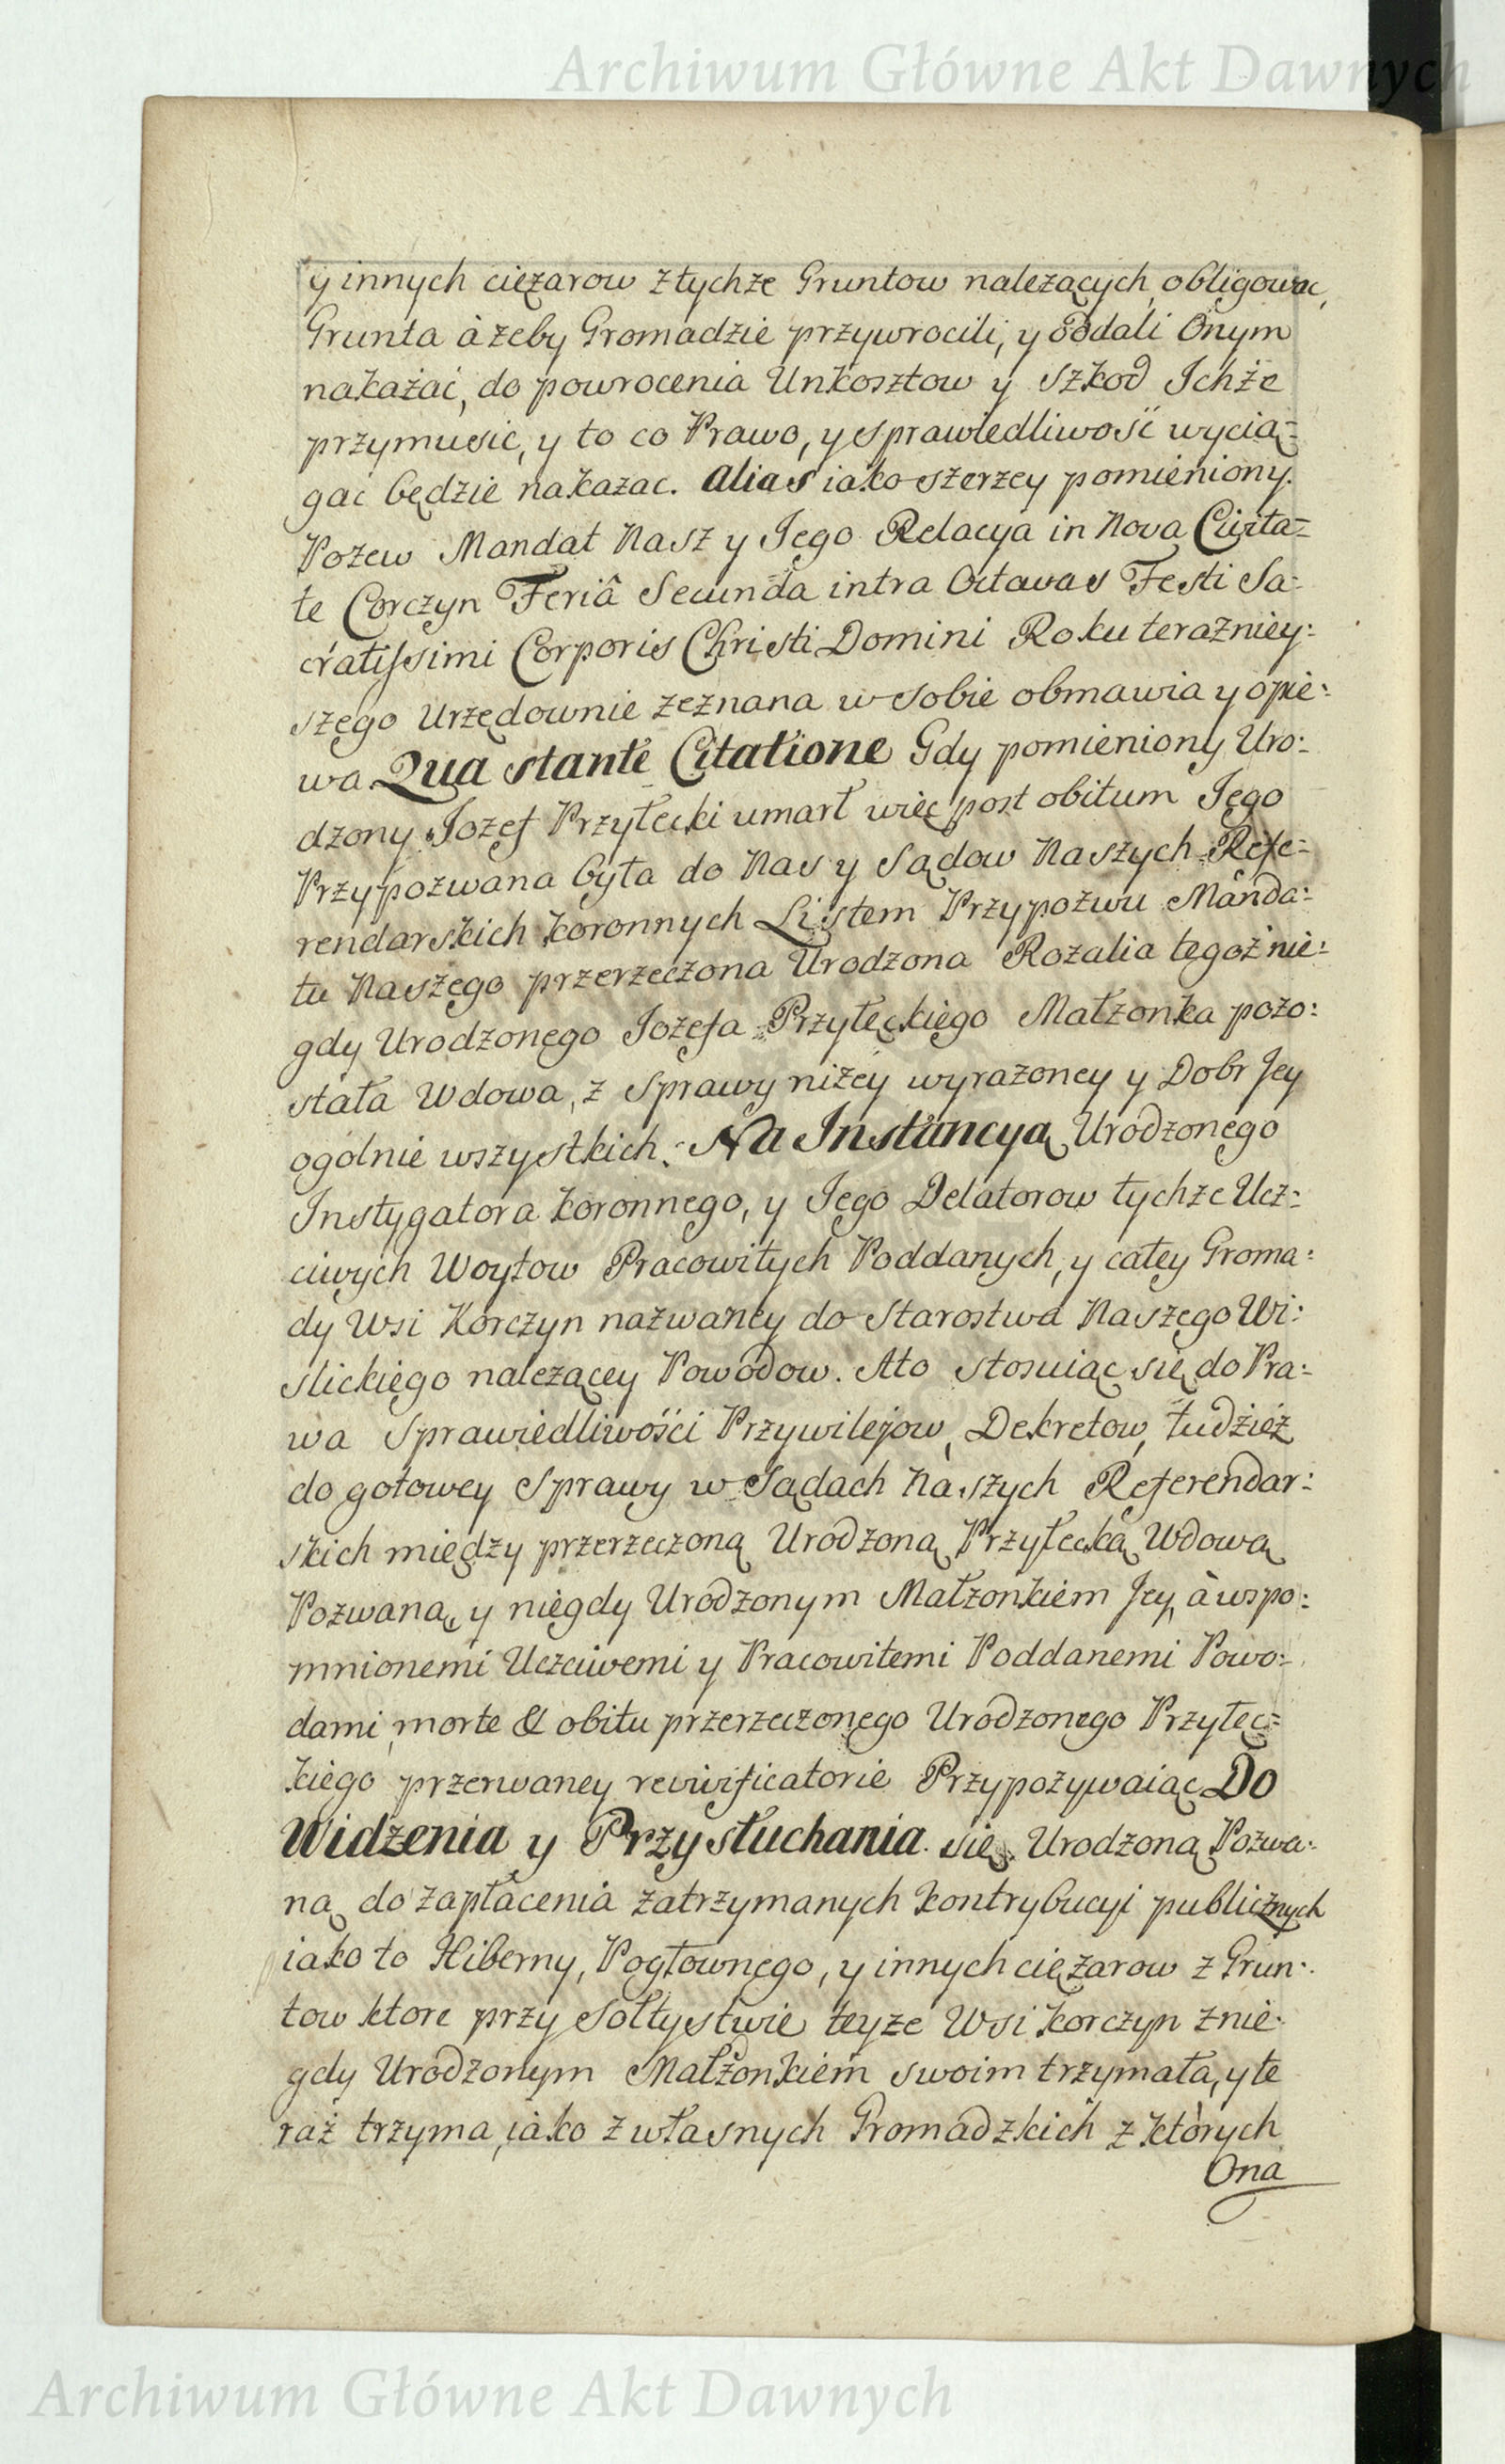 Archiwum Główne Akt Dawnych
y innych cięzarow z tychże Gruntow nalezących, obligowac,
Grunta àżeby Gromadzie przywrocili, y oddali Onym
nakażać, do powrocenia Unkosztow y szkod Ichże
przymusic, y to co Prawo, y sprawiedliwość wycią=
gać będzie nakazac. Alias iako szerzey pomieniony
Pozew Mandat Nasz y Jego Relacya in Nova Civita=
te Corczyn Feriâ Secunda intra Octavas Festi Sa=
cratissimi Corporis Christi Domini Roku teraźniey:
szego Urzędownie zeznana w sobie obmawia y opie:
wa. Qua stante Citatione Gdy pomieniony Uro:
dzony Jozef Przyłecki umarł więc post obitum Jego
Przypozwana była do Nas y Sądow Naszych Refe=
rendarskich koronnych Listem Przypozwu Manda:
tu Naszego przerzeczona Urodzona Rozalia tegoż nie:
gdy Urodzonego Jozefa Przyłęckiego Małzonka pozo:
stała Wdowa, z Sprawy niżey wyrazoney y Dobr Jey
ogolnie wszystkich. Na Instancyą Urodzonego
Instygatora koronnego, y Jego Delatorow tychże Ucz=
ciwych Woytow Pracowitych Poddanych, y całey Groma:
dy Wsi Korczyn nazwaney do Starostwa Naszego Wi:
slickiego nalezącey Powodow. Ato stosuiąc się do Pra:
wa Sprawiedliwości Przywilejow, Dekretow, tudzież
do gotowey Sprawy w Sądach Naszych Referendar:
skich między przerzeczoną Urodzoną Przyłecką Wdową
Pozwaną, y niegdy Urodzonym Małzonkiem Jey, à wspo:
mnionemi Uczciwemi y Pracowitemi Poddanemi Powo:
dami, morte & obitu przerzeczonego Urodzonego Przyłęc=
kiego przerwaney revivificatorie Przypozywaiąc Do
Widzenia y Przysłuchania się Urodzoną Pozwa:
ną do zapłacenia zatrzymanych kontrybucyi publicznych
iako to Hiberny, Pogłownego, y innych ciężarow z Grun:
tow ktore przy Sołtystwie teyze Wsi Korczyn z nie:
gdy Urodzonym Małżonkiem swoim trzymała, y te
raż trzyma, iako z własnych Gromadzkich z ktorych
Ona
Archiwum Główne Akt Dawnych